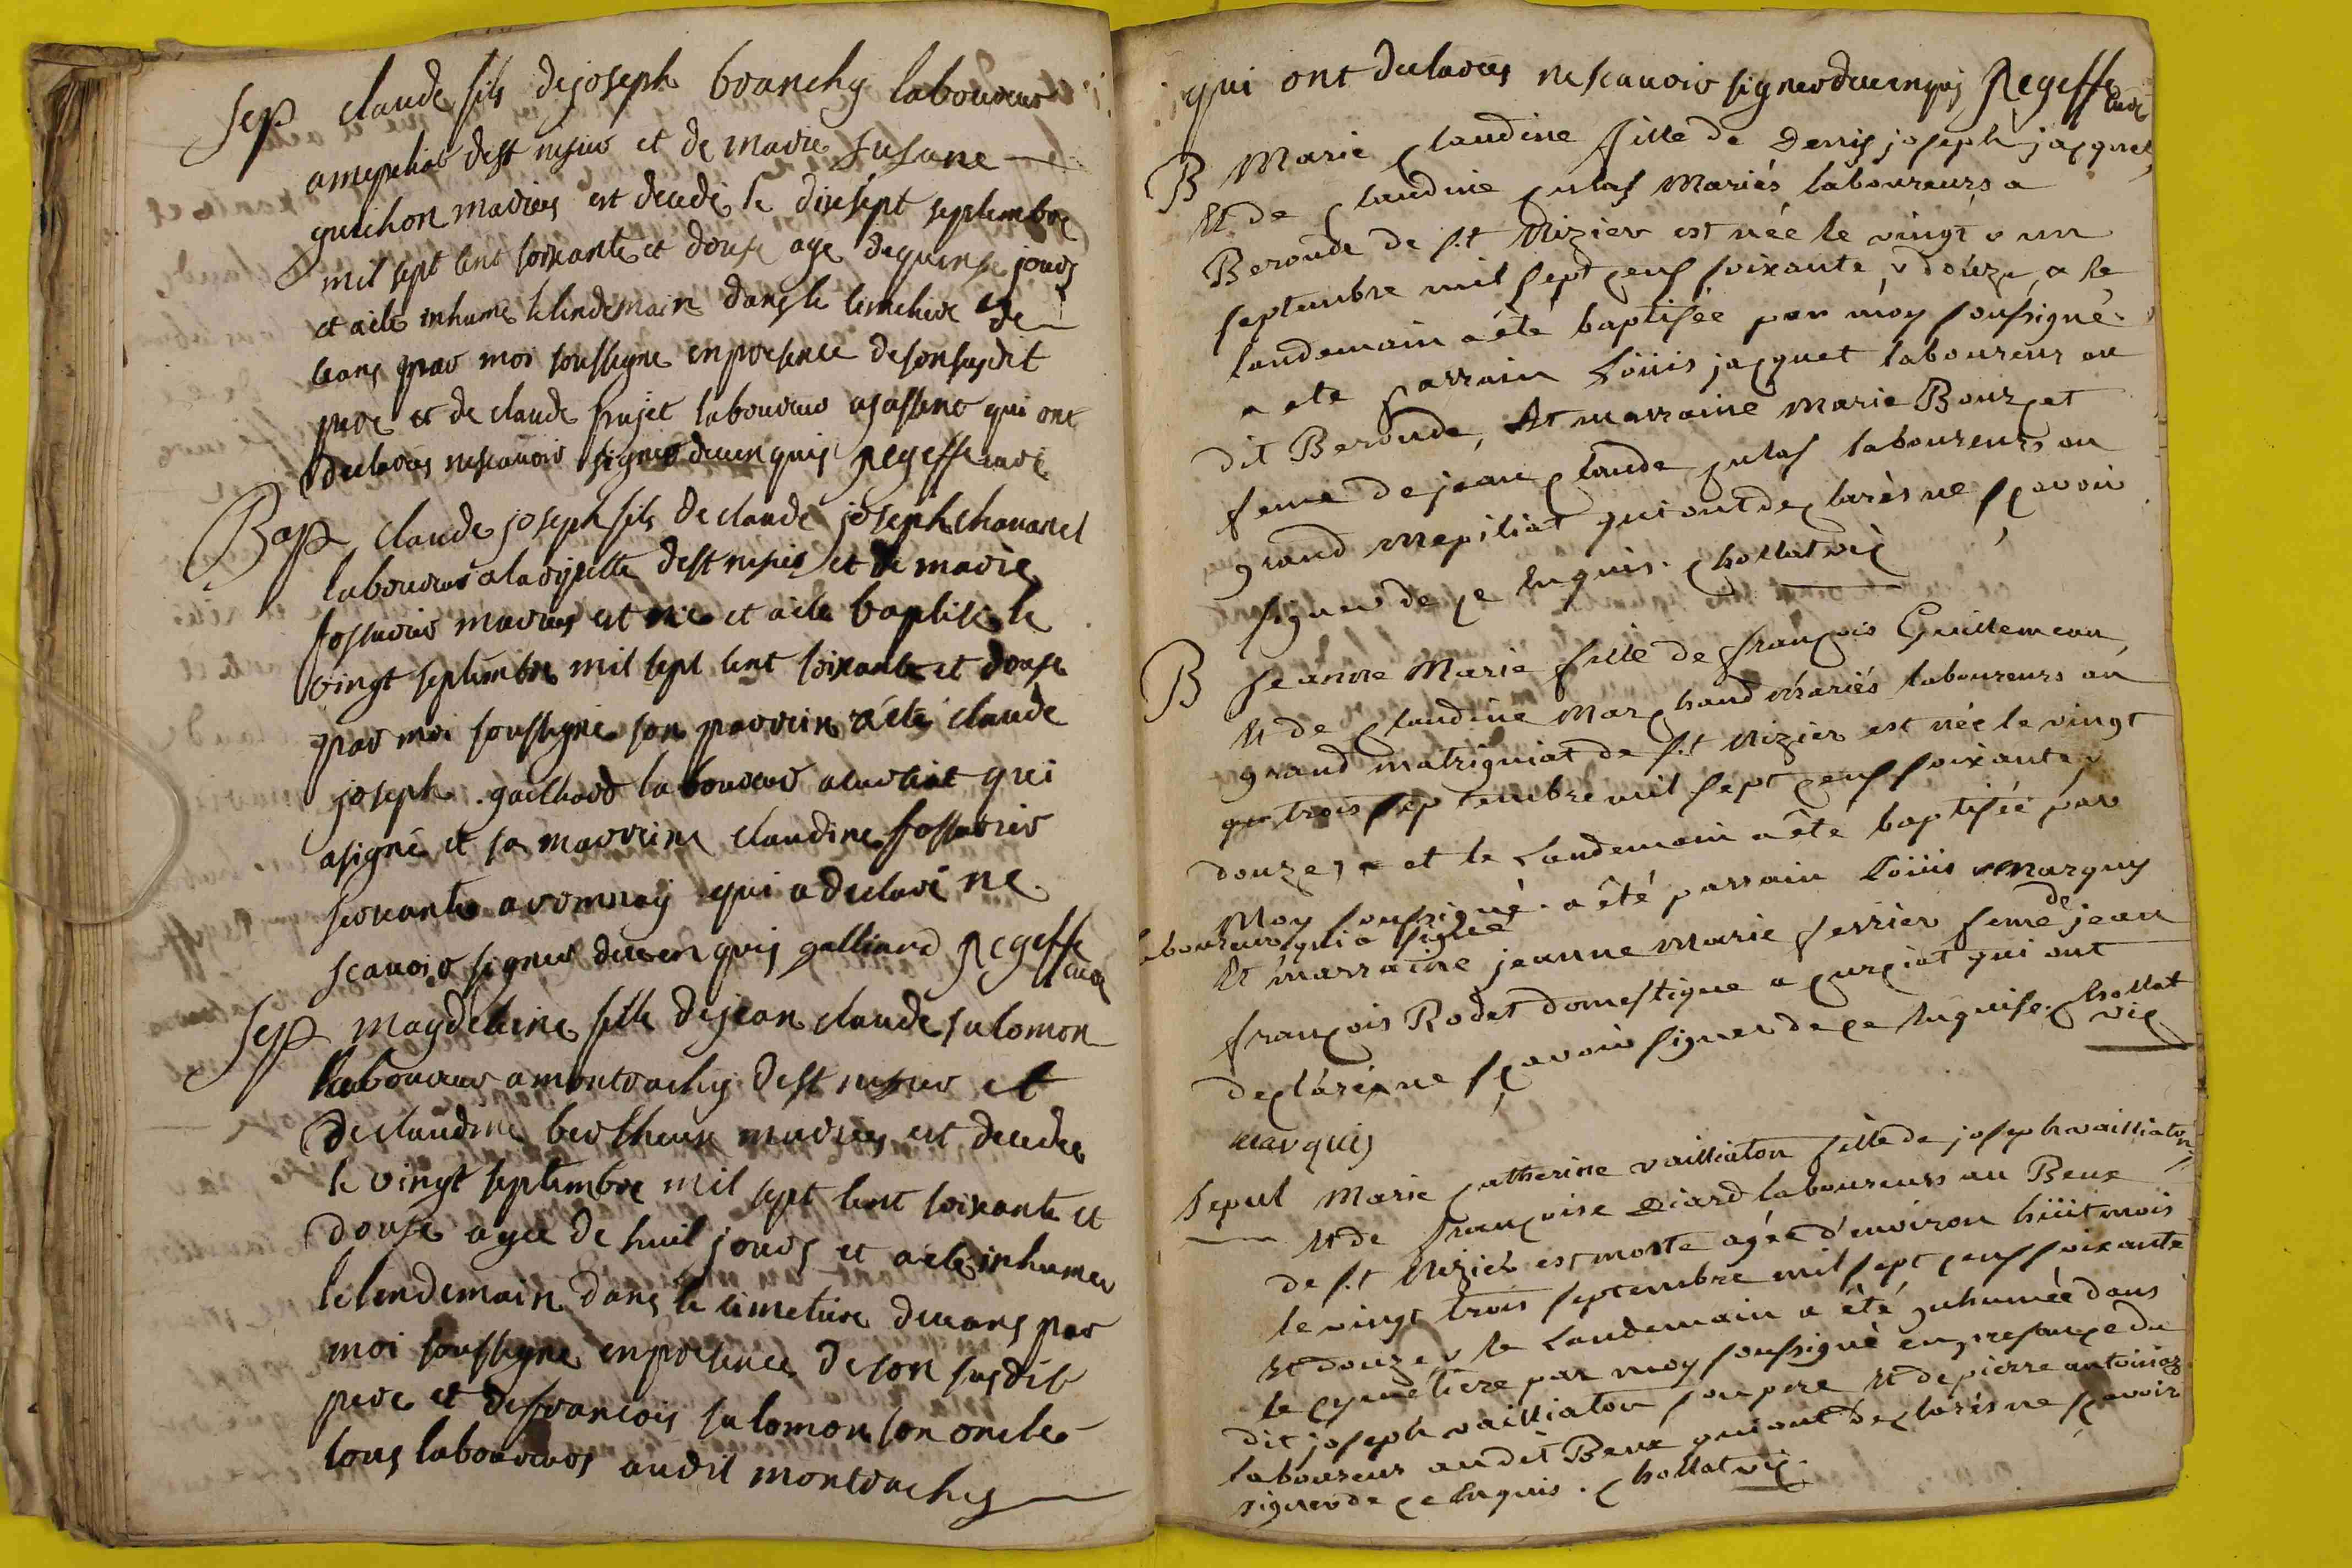 Sep claude fils de joseph branchy laboureur
a mepiliat de st nisier et de marie susane
guichon maries est decede le dixsept septembre
mil sept cent soixante et douse age de quinse jours
et a ete inhume le lendemain dans le cimetiere de
ceans par moi soussigne en presence de son susdit
pere et de claude frajet laboureur qui ont
declares ne scavoir signer de ce enquis Regeffe cure
Bap claude joseph fils de claude joseph chavanel
laboureur a la de st nisier et de marie
fossurier maries est né et a ete baptisé le
vingt septembre mil sept cent soixante et douse
par moi soussigné son parrein a été claude
joseph gailliard laboureur a qui
a signé et sa marreine claudine fossurier
servante a romnay qui a declaré ne
scavoir signer de ce enquis galliard Regeffe
cure
Sep magdeleine fille de jean claude salomon
laboureur a montrachy de st nisier et
de claudine bertheux maries est decedee
le vingt septembre mil sept cent soixante et
douse agee de huit jours et a ete inhumee
le lendemain dans le cimetiere de ceans par
moi soussigne en presence de son susdit
pere et de francois salomon son oncle
tous laboureurs audit montrachy
qui ont declares ne scavoir signer de ce enquis Regeffe cure
B Marie Claudine fille de Denis joseph jacquet
Et de Claudine Mariés laboureurs a
Beroude de st Nizier est née le vingt v un
septembre mil sept cens soixante v douze, a le
landemain a été baptisée par moy soussigné
a ete parrain Loüis jacquet laboureur au
dit Beroude, Et marraine Marie Bourcet
feme de jean Claude laboureurs au
grand mepiliat qui ont declarés ne scavoir
signer de ce Enquis. Chollat vic
B jeanne Marie fille de françois Guillemeau
Et de Claudine Marchand mariés laboureurs au
grand matrigniat de st Nizier est née le vingt
trois septembre mil sept cens soixante v
douze, et le Landemain a été baptisée par
Moy soussigné. a été parrain Loüis Marquis
laboureur qui a signé
Et marraine jeanne Marie ferrier feme de jean
françois Rodet domestique a curciat qui ont
declaré ne scavoir signer de ce Enquise. Chollat
vic
marquis
Sepul Marie Catherine vailliaton fille de joseph vailliaton
Et de françoise Diard laboureurs au Beux
de st Nizier est morte agée d'environ hüit mois
le vingt trois septembre mil sept cens soixante
Et douze v le Landemain a été inhumée dans
le cymetiere par moy soussigné en presance du
dit joseph vailliaton son pere Et de pierre
laboureur audit Beux qui ont declarés ne scavoir
signer de ce Enquis. Chollat vic.